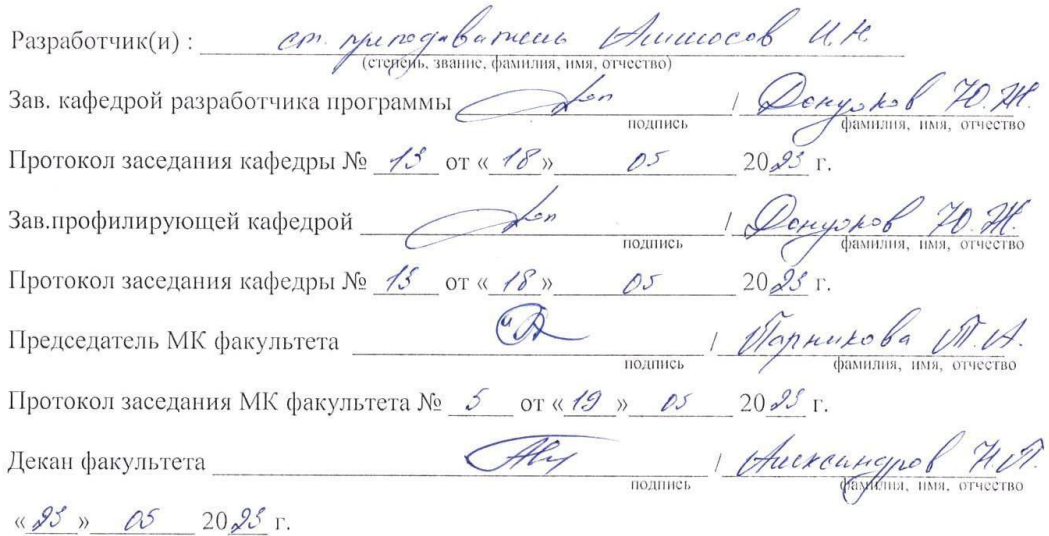 Разработчик(и) : ст. преподаватель Алимосов И.Н.
(степень, звание, фамилия, имя, отчество)
Зав. кафедрой разработчика программы / Ю.Ж.
подпись фамилия, имя, отчество
Протокол заседания кафедры № 13 от « 18 » 05 2023 г.
Зав.профилирующей кафедрой / Ю.Ж.
подпись фамилия, имя, отчество
Протокол заседания кафедры № 13 от « 18 » 05 2023 г.
Председатель МК факультета / Парникова Т.А.
подпись фамилия, имя, отчество
Протокол заседания МК факультета № 5 от « 19 » 05 2023 г.
Декан факультета / Александров Н.П.
подпись фамилия, имя, отчество
« 23 » 05 2023 г.